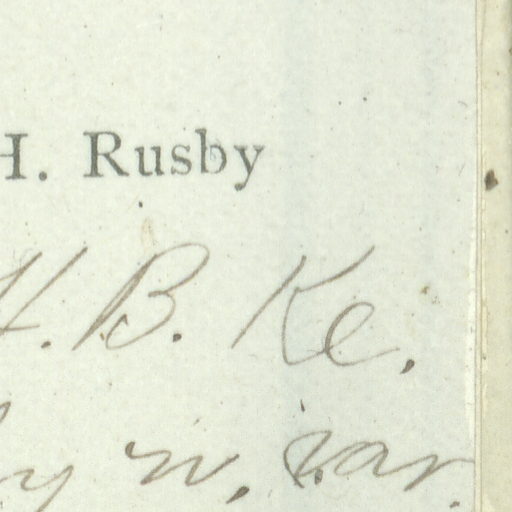 H. Rusby
H. B. Ke.
n. var.